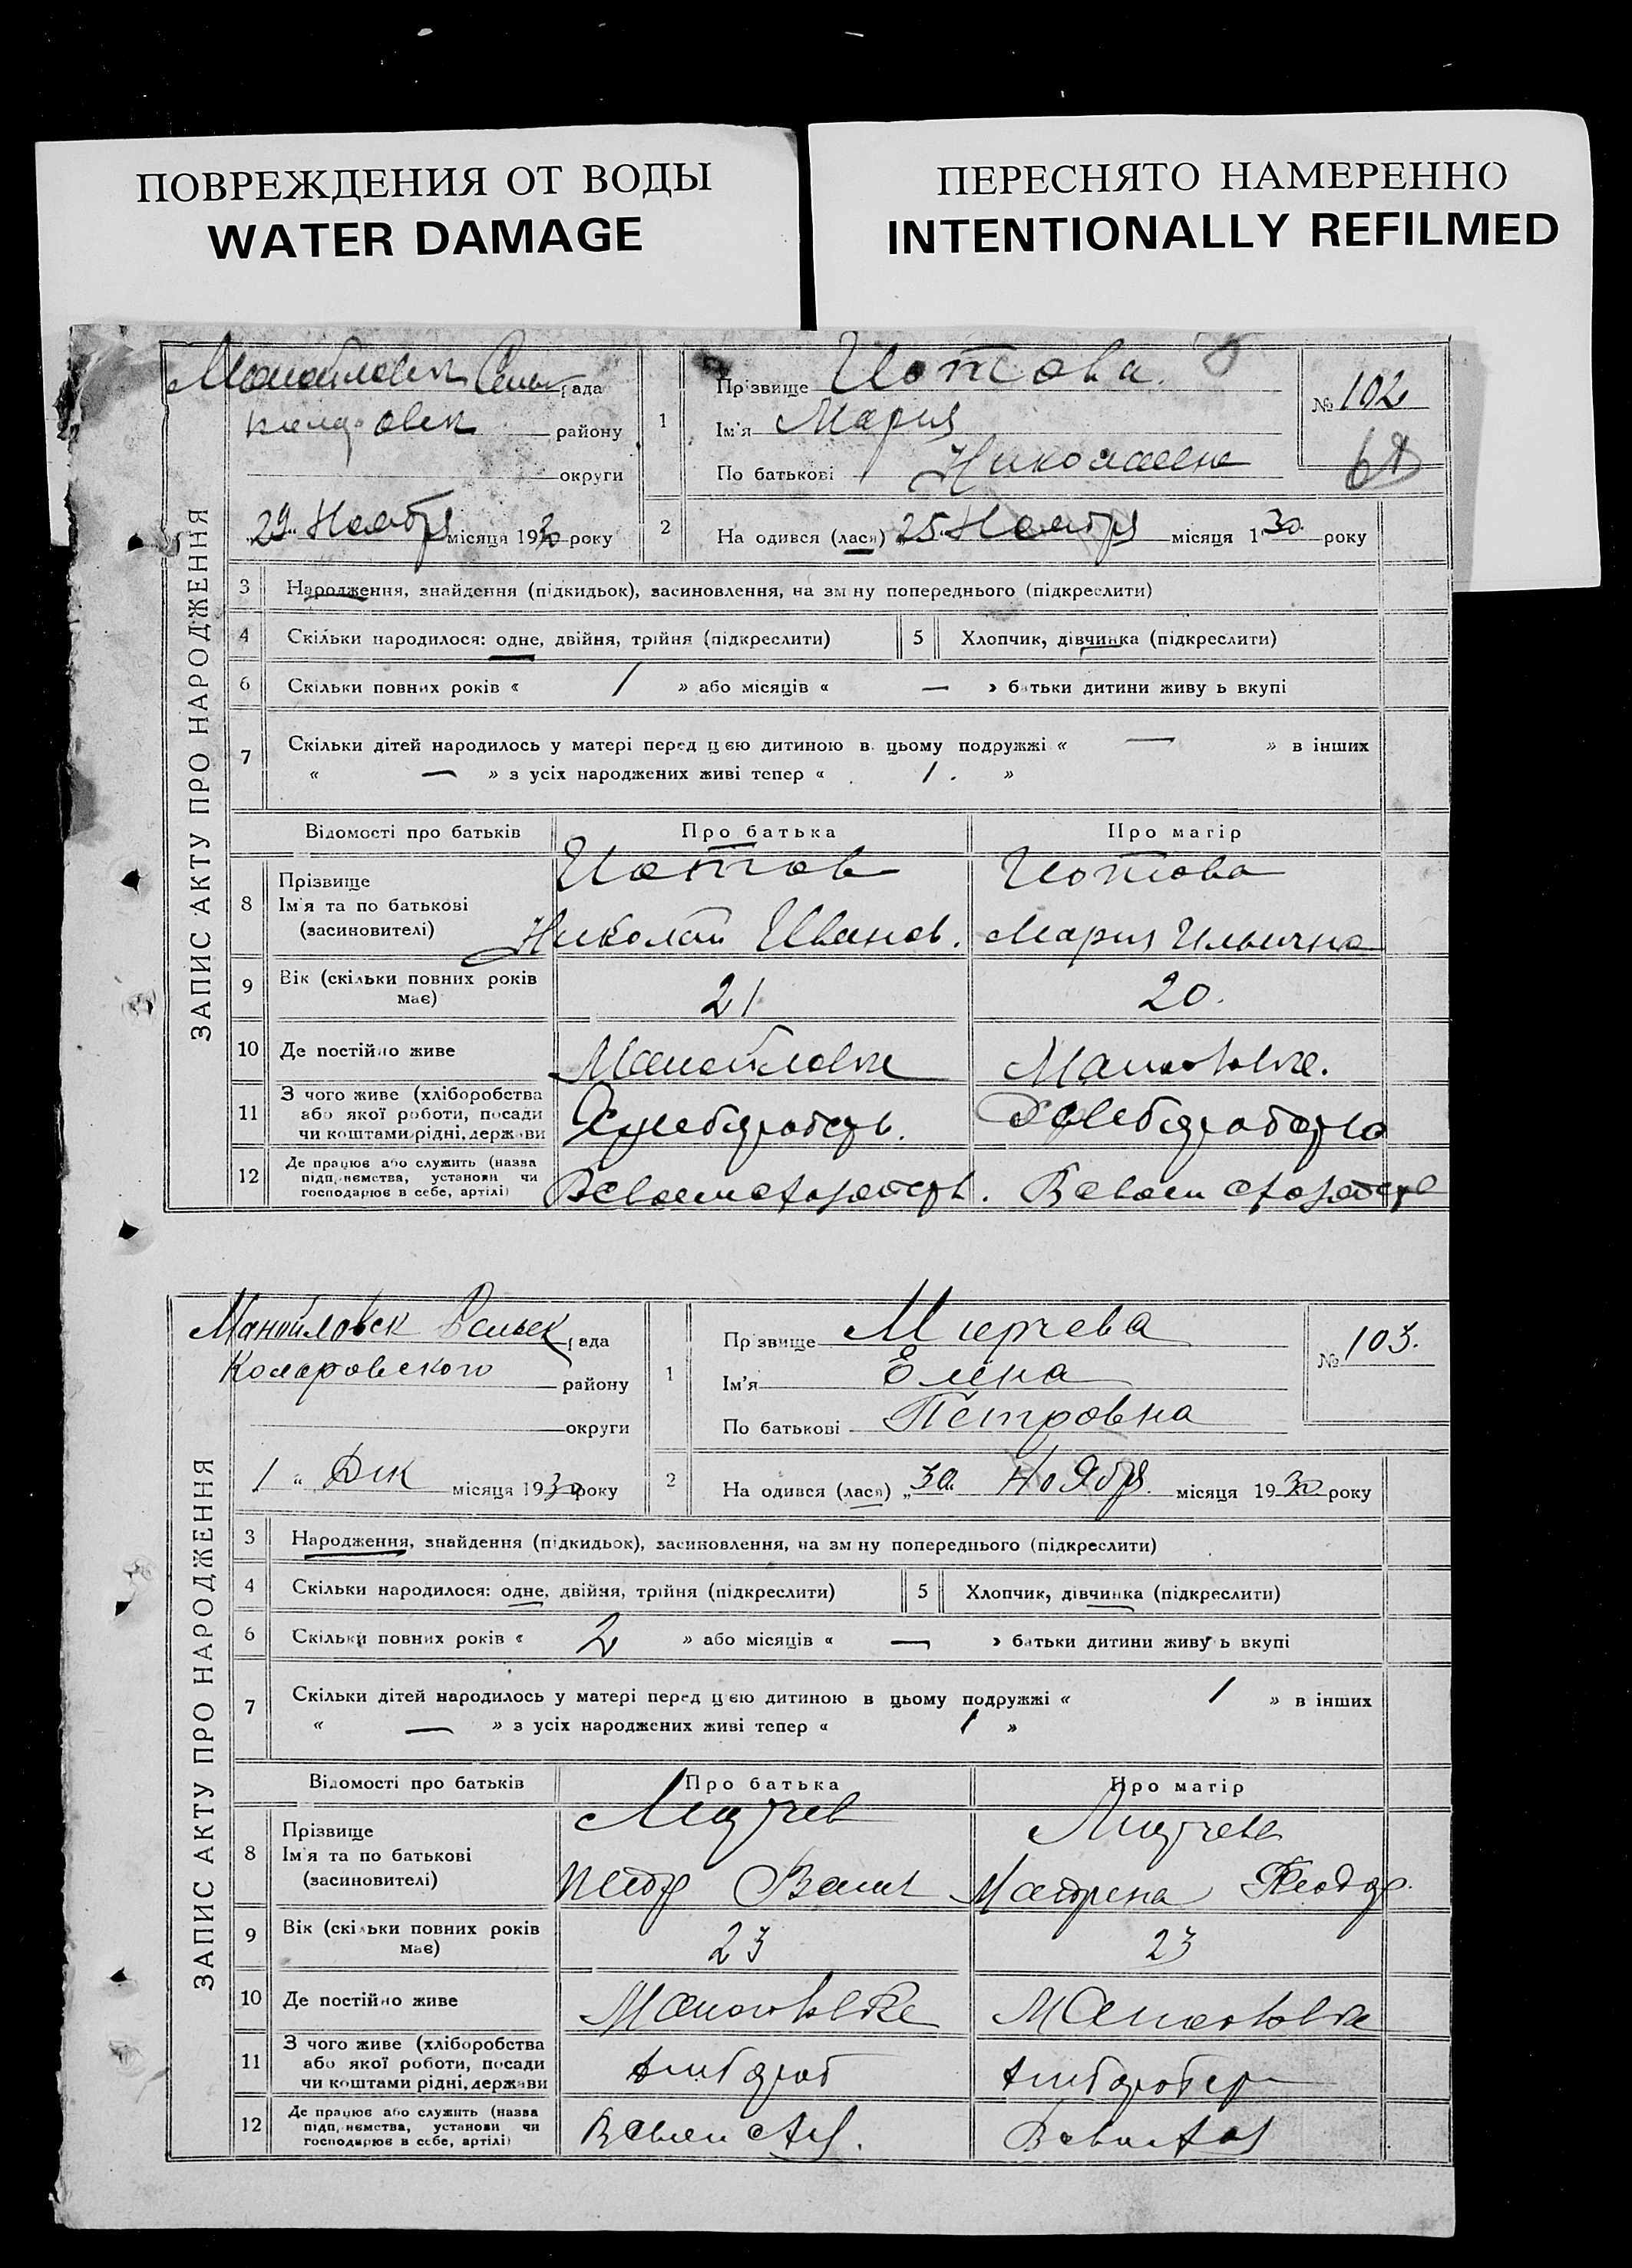 ПОВРЕЖДЕНИЯ ОТ ВОДЫ
WATER DAMAGE
ПЕРЕСНЯТО НАМЕРЕННО
INTENTIONALLY REFILMED
ЗАПИС АКТУ ПРО НАРОДЖЕННЯ
рада
району
округи
29 Ноября місяця 1930 року
1
Прізвище Иотова
Ім'я Мария
По батькові Николаевна
№ 102
2 На одився (лася) „25 Ноября місяця 1 30 року
3 Народження, знайдення (підкидьок), засиновлення, на зм ну попереднього (підкреслити)
4 Скільки народилося: одне, двійня, трійня (підкреслити) 5 Хлопчик, дівчинка (підкреслити)
6 Скільки повних років « 1 » або місяців « — » батьки дитини живу ь вкупі
7 Скільки дітей народилось у матері перед цією дитиною в цьому подружжі « — » в інших
« — » з усіх народжених живі тепер « 1. »
Відомості про батьків Про батька Про матір
8 Прізвище Иотов Иотова
Ім'я та по батькові
(засиновителі) Николай Иванов. Мария Ильична
9 Вік (скільки повних років
має) 21 20.
10 Де постійно живе Манойловке
11 З чого живе (хліборобства
або якої роботи, посади
чи коштами рідні, держави
12 Де працює або служить (назва
підп, иємства, установи чи
господарює в себе, артілі)
ЗАПИС АКТУ ПРО НАРОДЖЕННЯ
Манойловск рада
Коларовского району
округи
1 " Дек місяця 1930 року
1
Прізвище Мирчева
Ім'я Елена
По батькові Петровна
№ 103.
2 На одився (лася) „30. Ноября. місяця 1930 року
3 Народження, знайдення (підкидьок), засиновлення, на зм ну попереднього (підкреслити)
4 Скільки народилося: одне, двійня, трійня (підкреслити) 5 Хлопчик, дівчинка (підкреслити)
6 Скільки повних років « 2 » або місяців « — » батьки дитини живу ь вкупі
7 Скільки дітей народилось у матері перед цією дитиною в цьому подружжі « 1 » в інших
« — » з усіх народжених живі тепер « 1 »
Відомості про батьків Про батька Про матір
8 Прізвище Мирчев Мирчева
Ім'я та по батькові
(засиновителі) Петр Васил Матрена Феодор.
9 Вік (скільки повних років
має) 23 23
10 Де постійно живе
11 З чого живе (хліборобства
або якої роботи, посади
чи коштами рідні, держави
12 Де працює або служить (назва
підп, иємства, установи чи
господарює в себе, артілі)